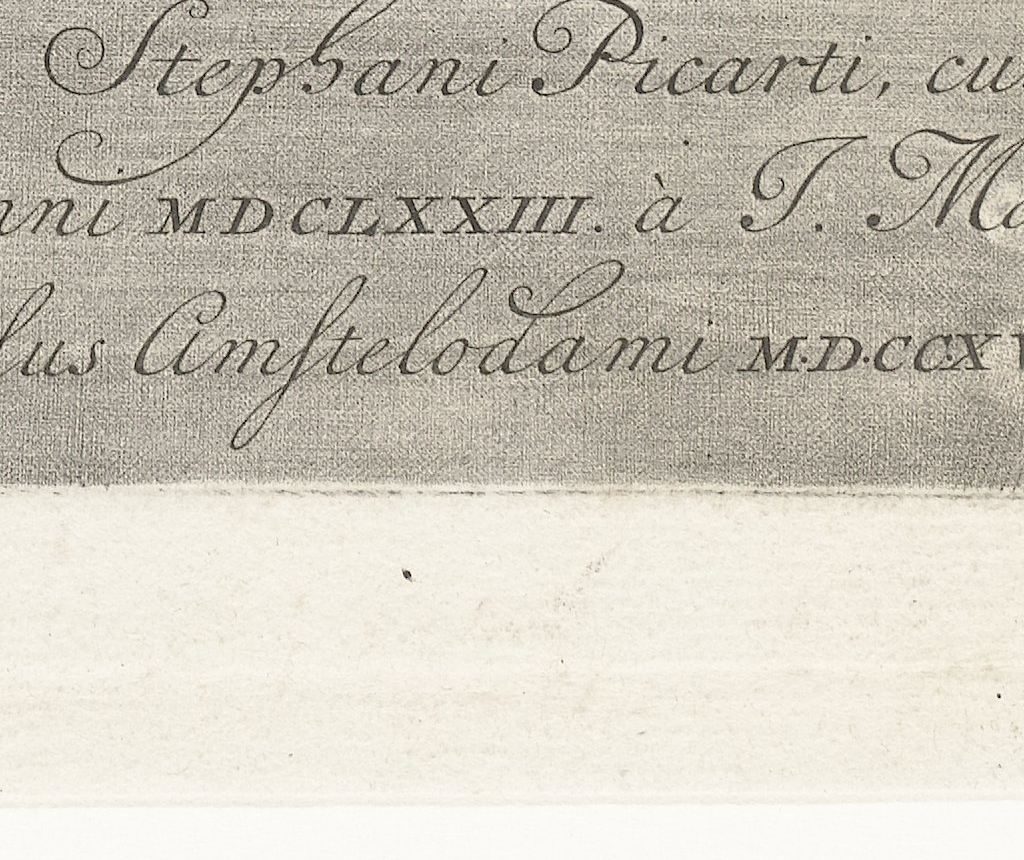 Stephani Picarti, cu
nni MDCLXXIII. à J. Ma
lus Amſtelodami M·D·CCXV